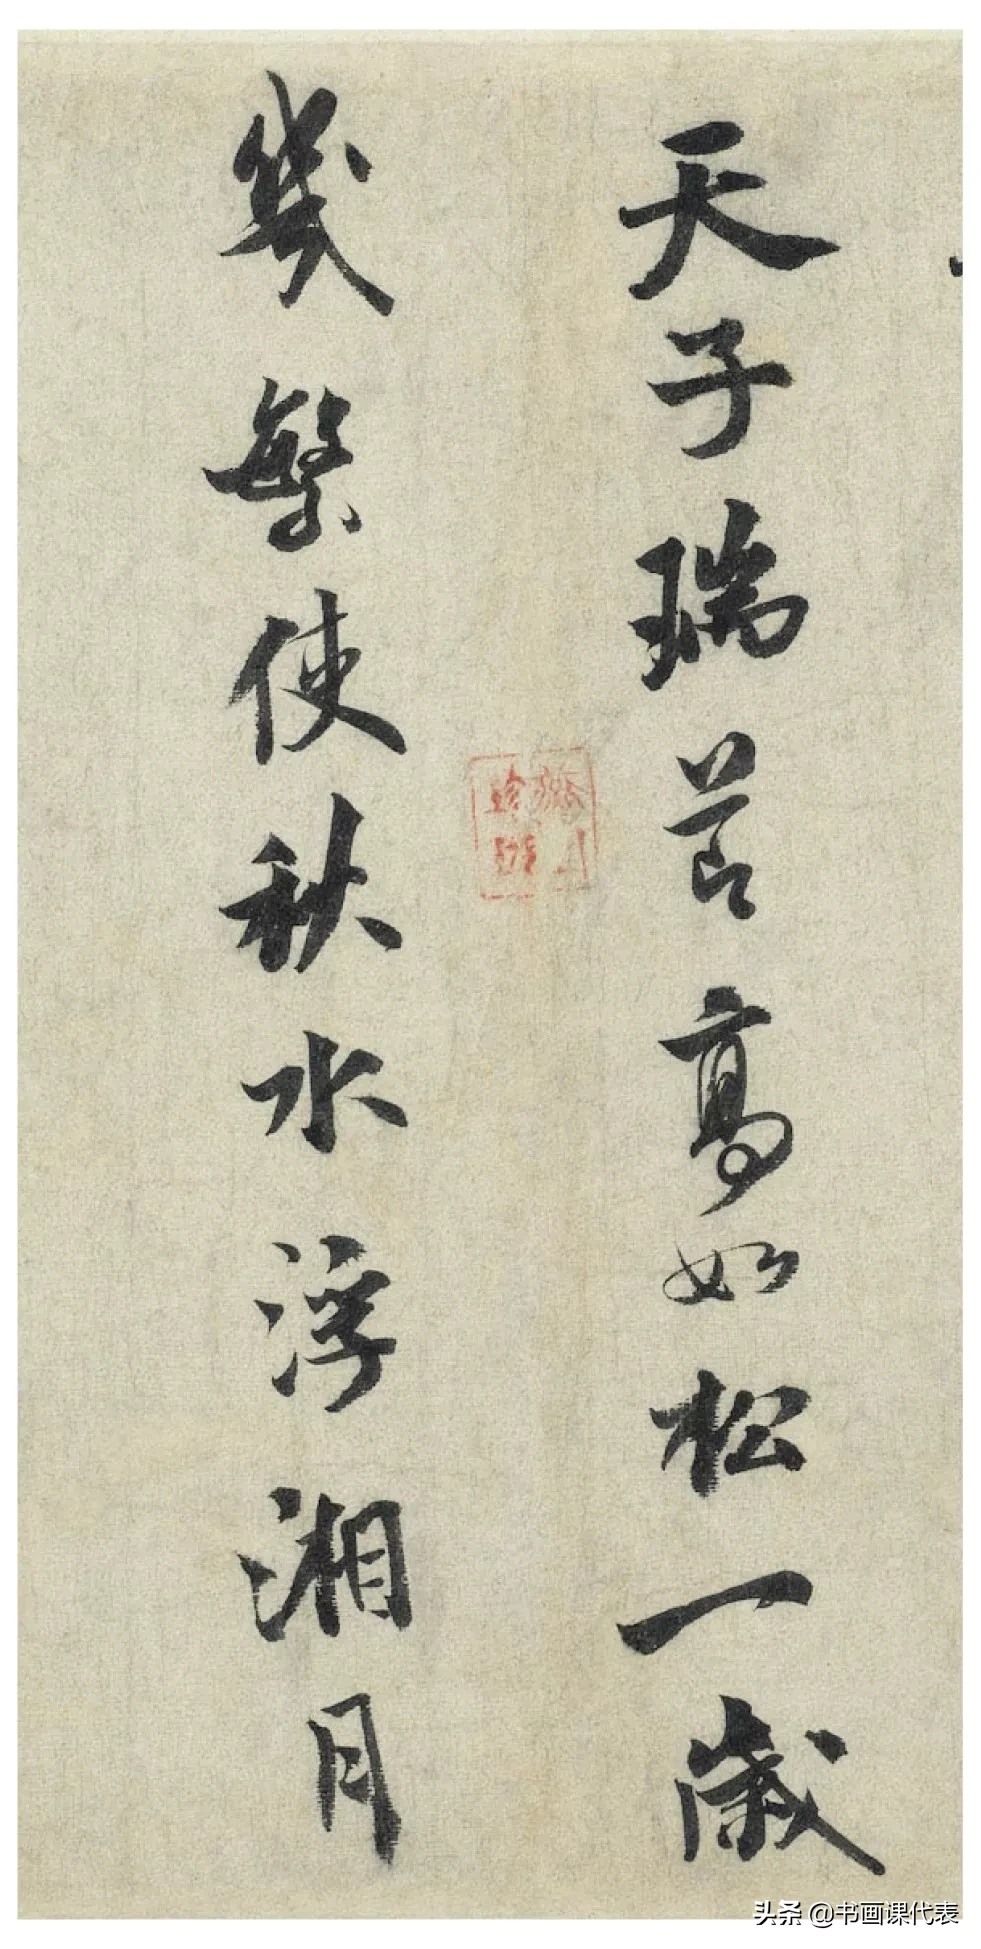 天子瑞节高如松一歲
幾繁使秋水浮湘月
头条 @书画课代表